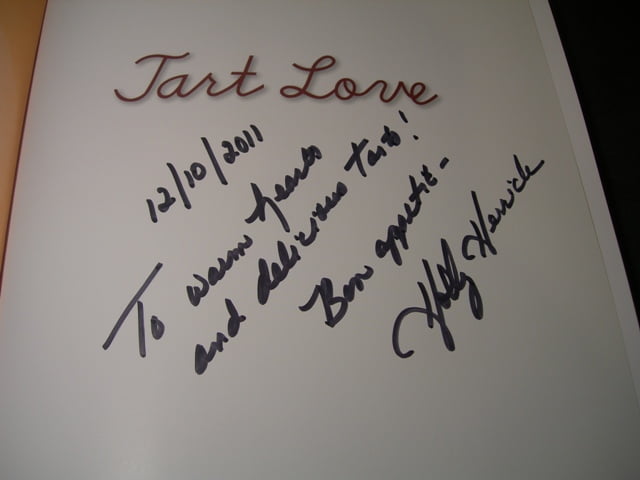 Tart Love
12/10/2011
To warm hearts
and delicious tarts!
Bon appetit-
Holly Herrick